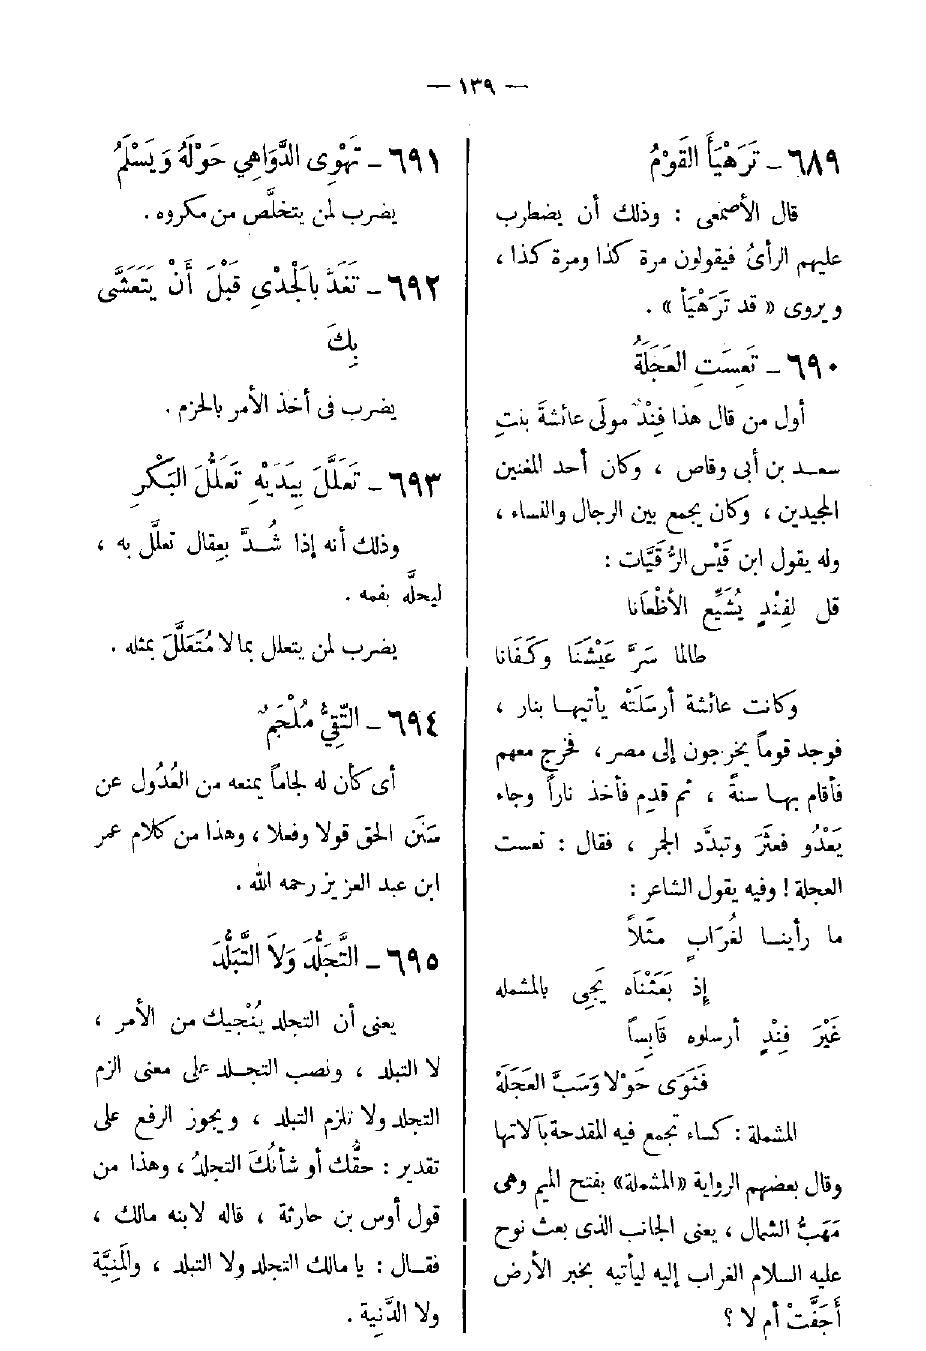 — ١٣٩ —
٦٨٩ – تَرَهْيَأَ القَوْمُ
قال الأصمعى : وذلك أن يضطرب
عليهم الرأىُ فيقولون مرة كذا ومرة كذا ،
ويروى « قد تَرَهْيَأ » .
٦٩٠ – تَعِسَتِ العَجَلَةُ
أول من قال هذا فِنْدٌ مولَى عائشةَ بنتِ
سعد بن أبى وقاص ، وكان أحد المغنين
المجيدين ، وكان يجمع بين الرجال والنساء ،
وله يقول ابن قَيْس الرُّقَيَّات :
قل لفِنْدٍ يُشَيِّع الأظْعَانا
طالما سَرَّ عَيْشَنَا وكَفَانا
وكانت عائشة أرسَلَتْه يأتيها بنار ،
فوجد قوماً يخرجون إلى مصر ، فخرج معهم
فأقام بها سنةً ، ثم قدم فأخذ ناراً وجاء
يَعْدُو فعثَرَ وتبدَّد الجمر ، فقال : تعست
العجلة ! وفيه يقول الشاعر :
ما رأينا لغُرَابٍ مثَلاً
إذ بَعَثْنَاه يَجِى بالمشمله
غَيْرَ فِنْدٍ أرسلوه قَابِساً
فَثَوَى حَوْلا وسَبَّ العَجَلَهْ
المشملة : كساء تجمع فيه المقدحة بآلاتها
وقال بعضهم الرواية «المشملة» بفتح الميم وهى
مَهَبُّ الشمال ، يعنى الجانب الذى بعث نوح
عليه السلام الغراب إليه ليأتيه بخبر الأرض
أجَفَّتْ أم لا ؟
٦٩١ – تَهْوِى الدَّوَاهِي حَوْلَهُ وَيَسْلَمُ
يضرب لمن يتخلَّص من مكروه .
٦٩٢ – تَغَدَّ بالْجَدْيِ قَبْلَ أَنْ يَتَعَشَّى
بِكَ
يضرب فى أخذ الأمر بالحزم .
٦٩٣ – تَعَلَّلَ بِيَدَيْهِ تَعَلُّلَ البَكْرِ
وذلك أنه إذا شُدَّ بعِقال تعلَّل به ،
ليحلَّه بفمه .
يضرب لمن يتعلل بما لا مُتَعَلَّلَ بمثله .
٦٩٤ – التَّقِيُّ مُلْجَمٌ
أى كأن له لجاماً يمنعه من العُدُول عن
سَنَن الحق قولا وفعلا ، وهذا من كلام عمر
ابن عبد العزيز رحمه الله .
٦٩٥ – التَّجَلُّدَ وَلاَ التَّبَلُّدَ
يعنى أن التجلد يُنْجيك من الأمر ،
لا التبلد ، ونصب التجلد على معنى الزم
التجلد ولا تلزم التبلد ، ويجوز الرفع على
تقدير : حقُّك أو شأنُكَ التجلدُ ، وهذا من
قول أوس بن حارثة ، قاله لابنه مالك ،
فقال : يا مالك التجلد ولا التبلد ، والمَنِيَّة
ولا الدَّنِية .